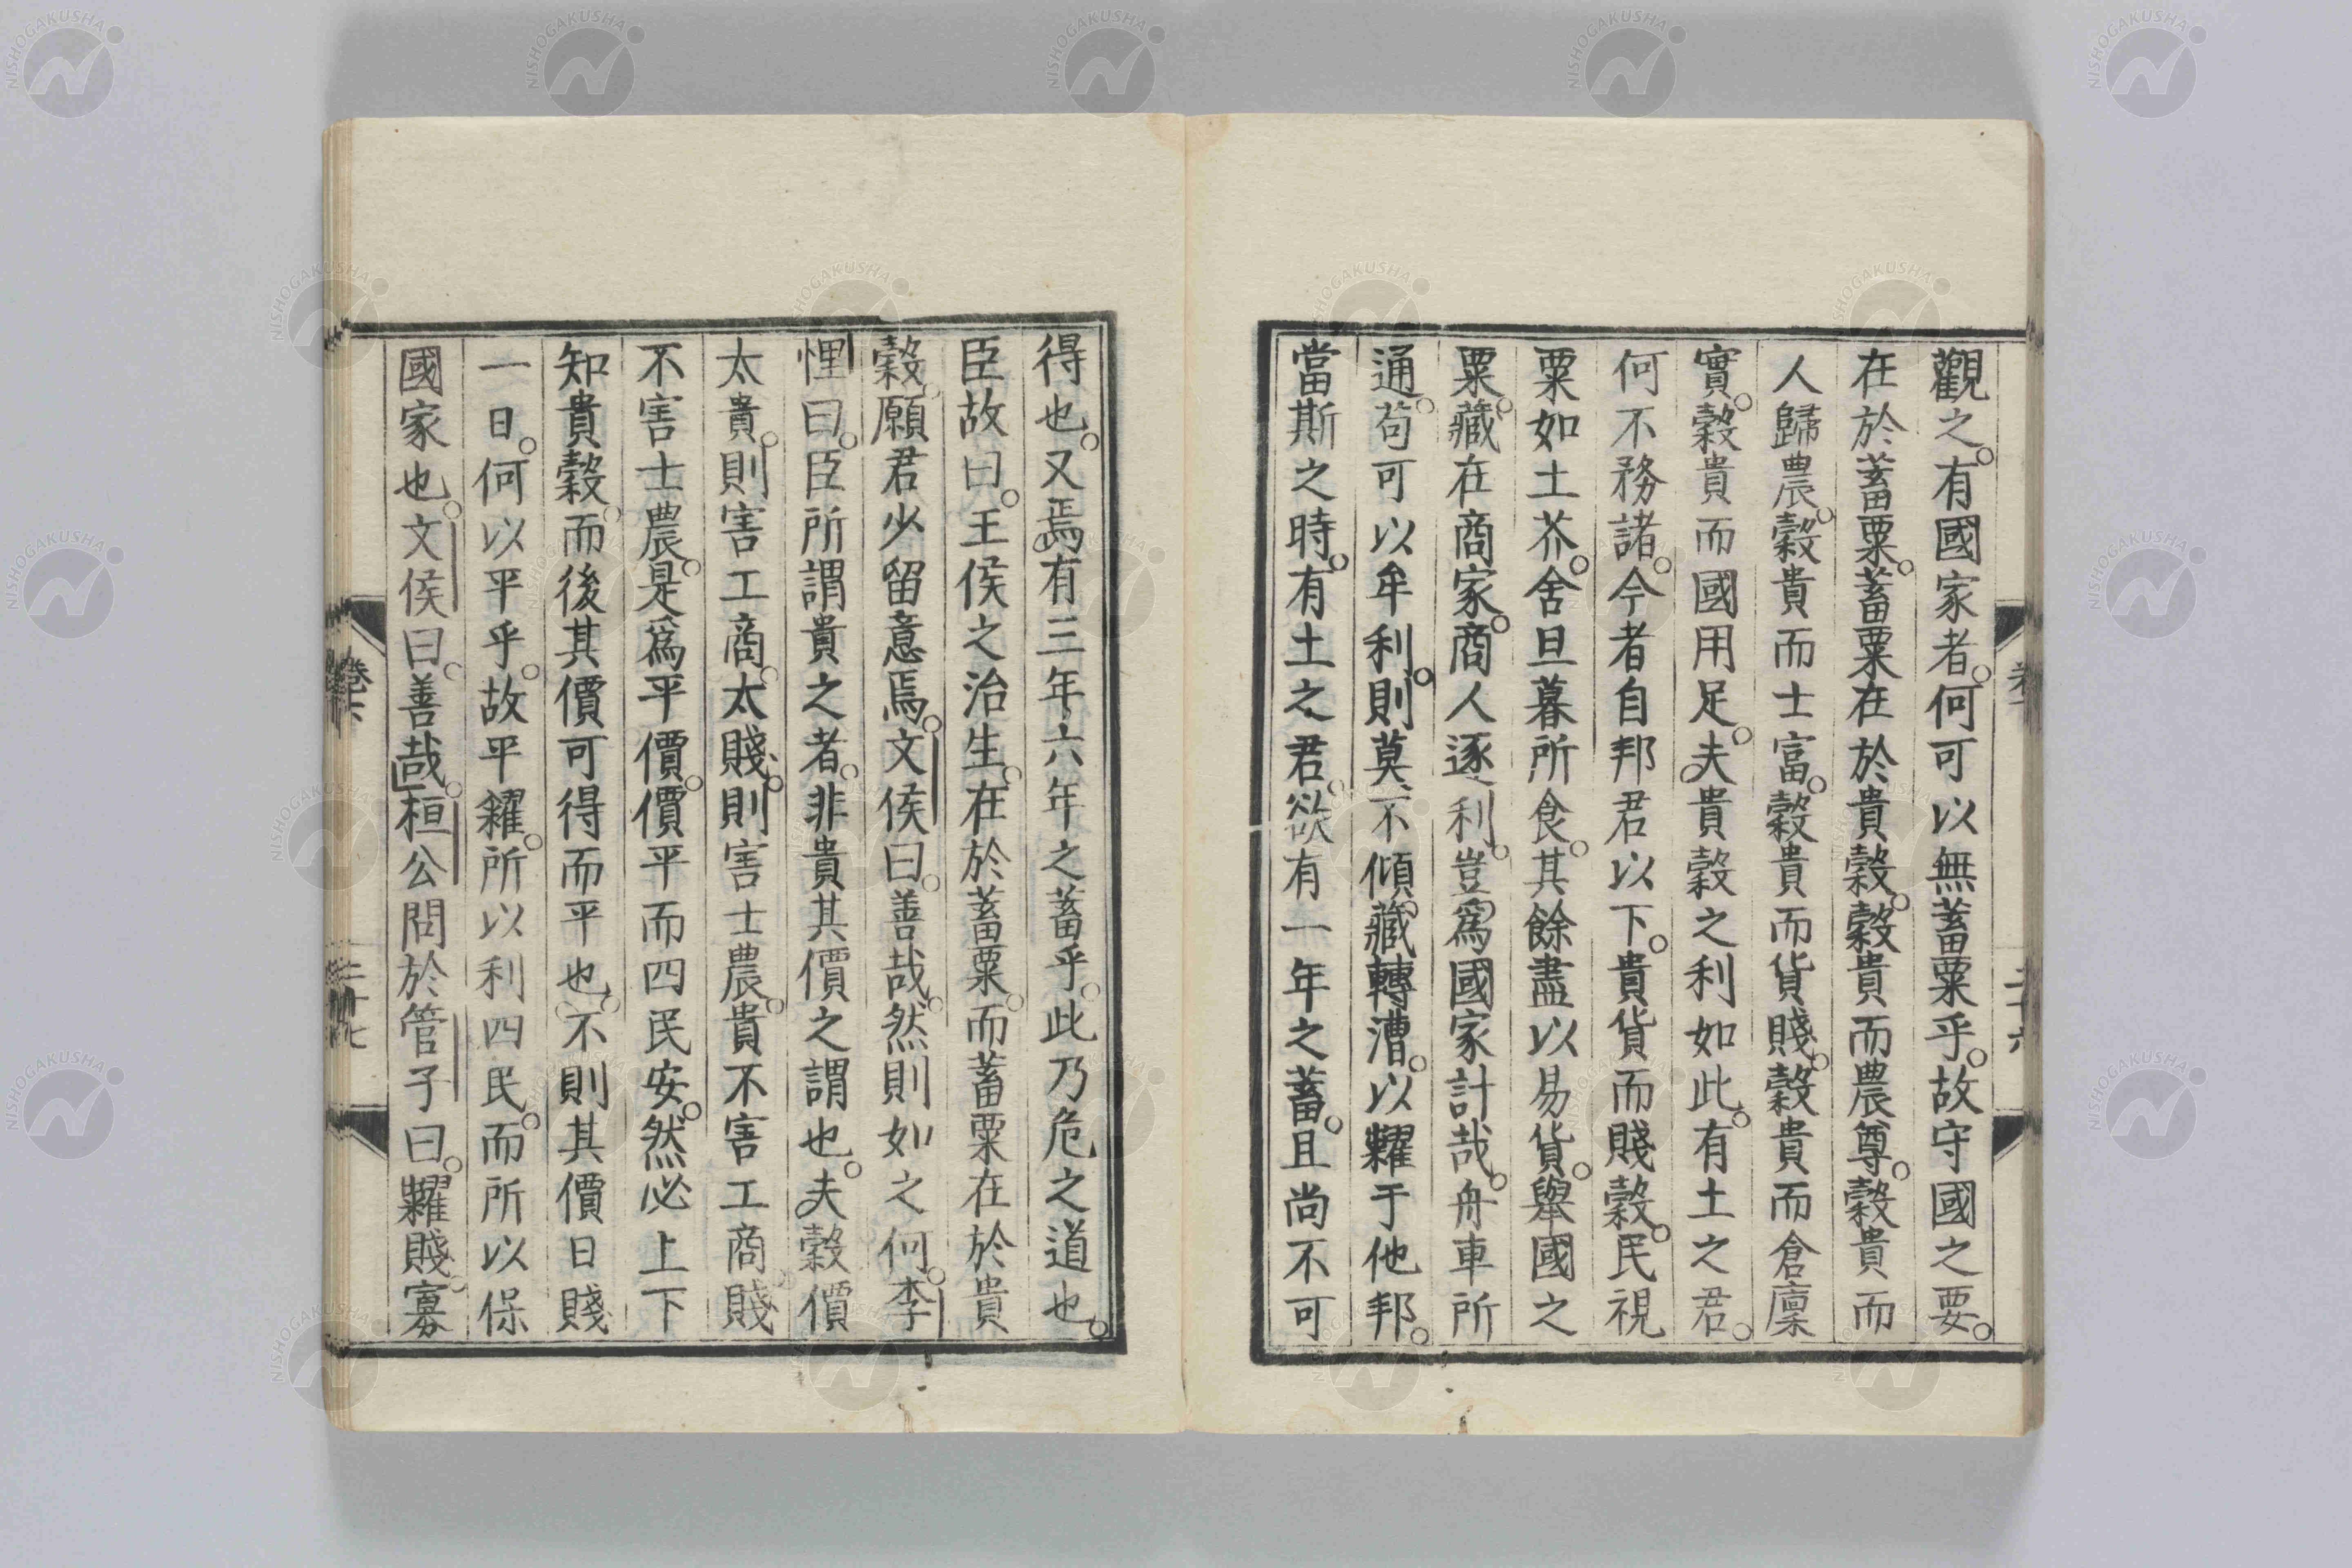 觀之。有國家者。何可以無蓄粟乎。故守國之要。
在於蓄粟。蓄粟在於貴穀。穀貴而農尊。穀貴而
人歸農。穀貴而士富。穀貴而貨賤。穀貴而倉廩
實。穀貴而國用足。夫貴穀之利如此。有土之君。
何不務諸。今者自邦君以下。貴貨而賤穀。民視
粟如土芥。舍旦暮所食。其餘盡以易貨。舉國之
粟。藏在商家。商人逐利。豈爲國家計哉。舟車所
通。苟可以牟利。則莫不傾藏轉漕。以糶于他邦。
當斯之時。有土之君。欲有一年之蓄。且尚不可
得也。又焉有三年六年之蓄乎。此乃危之道也。
臣故曰。王侯之治生。在於蓄粟。而蓄粟在於貴
穀。願君少留意焉。文侯曰。善哉。然則如之何。李
悝曰。臣所謂貴之者。非貴其價之謂也。夫穀價
太貴。則害工商。太賤。則害士農。貴不害工商。賤
不害士農。是爲平價。價平而四民安。然必上下
知貴穀。而後其價可得而平也。不則其價日賤
一日。何以平乎。故平糴。所以利四民。而所以保
國家也。文侯曰。善哉。桓公問於管子曰。糶賤。寡
卷六
二十七
二十六
NISHOGAKUSHA